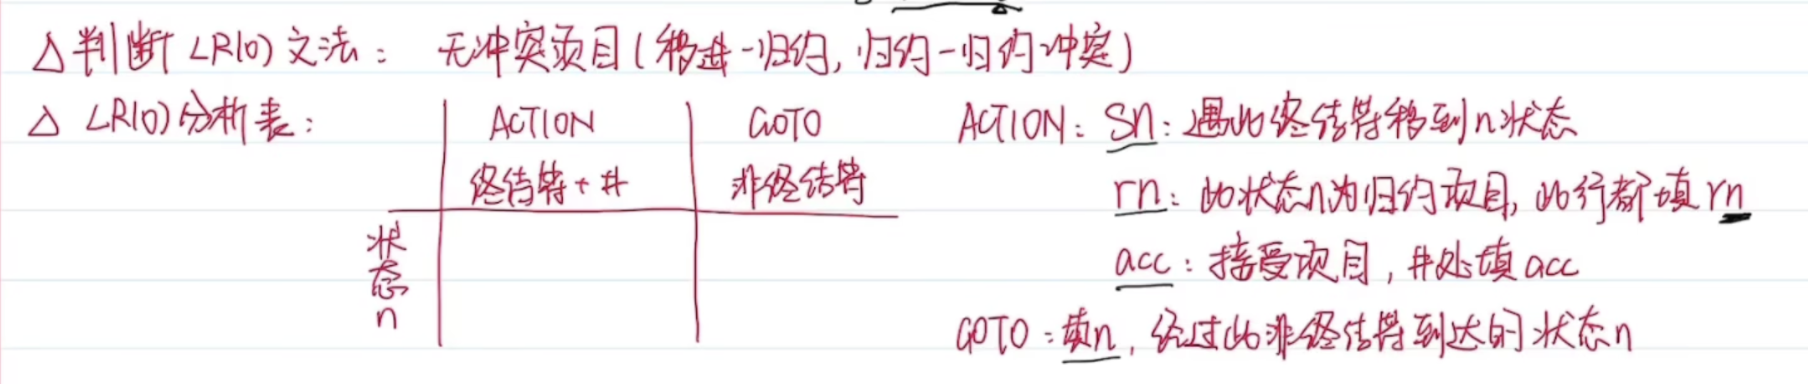 △ 判断 LR(0) 文法： 无冲突项目 (移进-归约, 归约-归约冲突)
△ LR(0) 分析表：
ACTION GOTO
终结符 + # 非终结符
状态n
ACTION: Sn: 遇此终结符移到n状态
rn: 此状态n为归约项目, 此行都填rn
acc: 接受项目, #处填acc
GOTO: 填n, 经过此非终结符到达的状态n